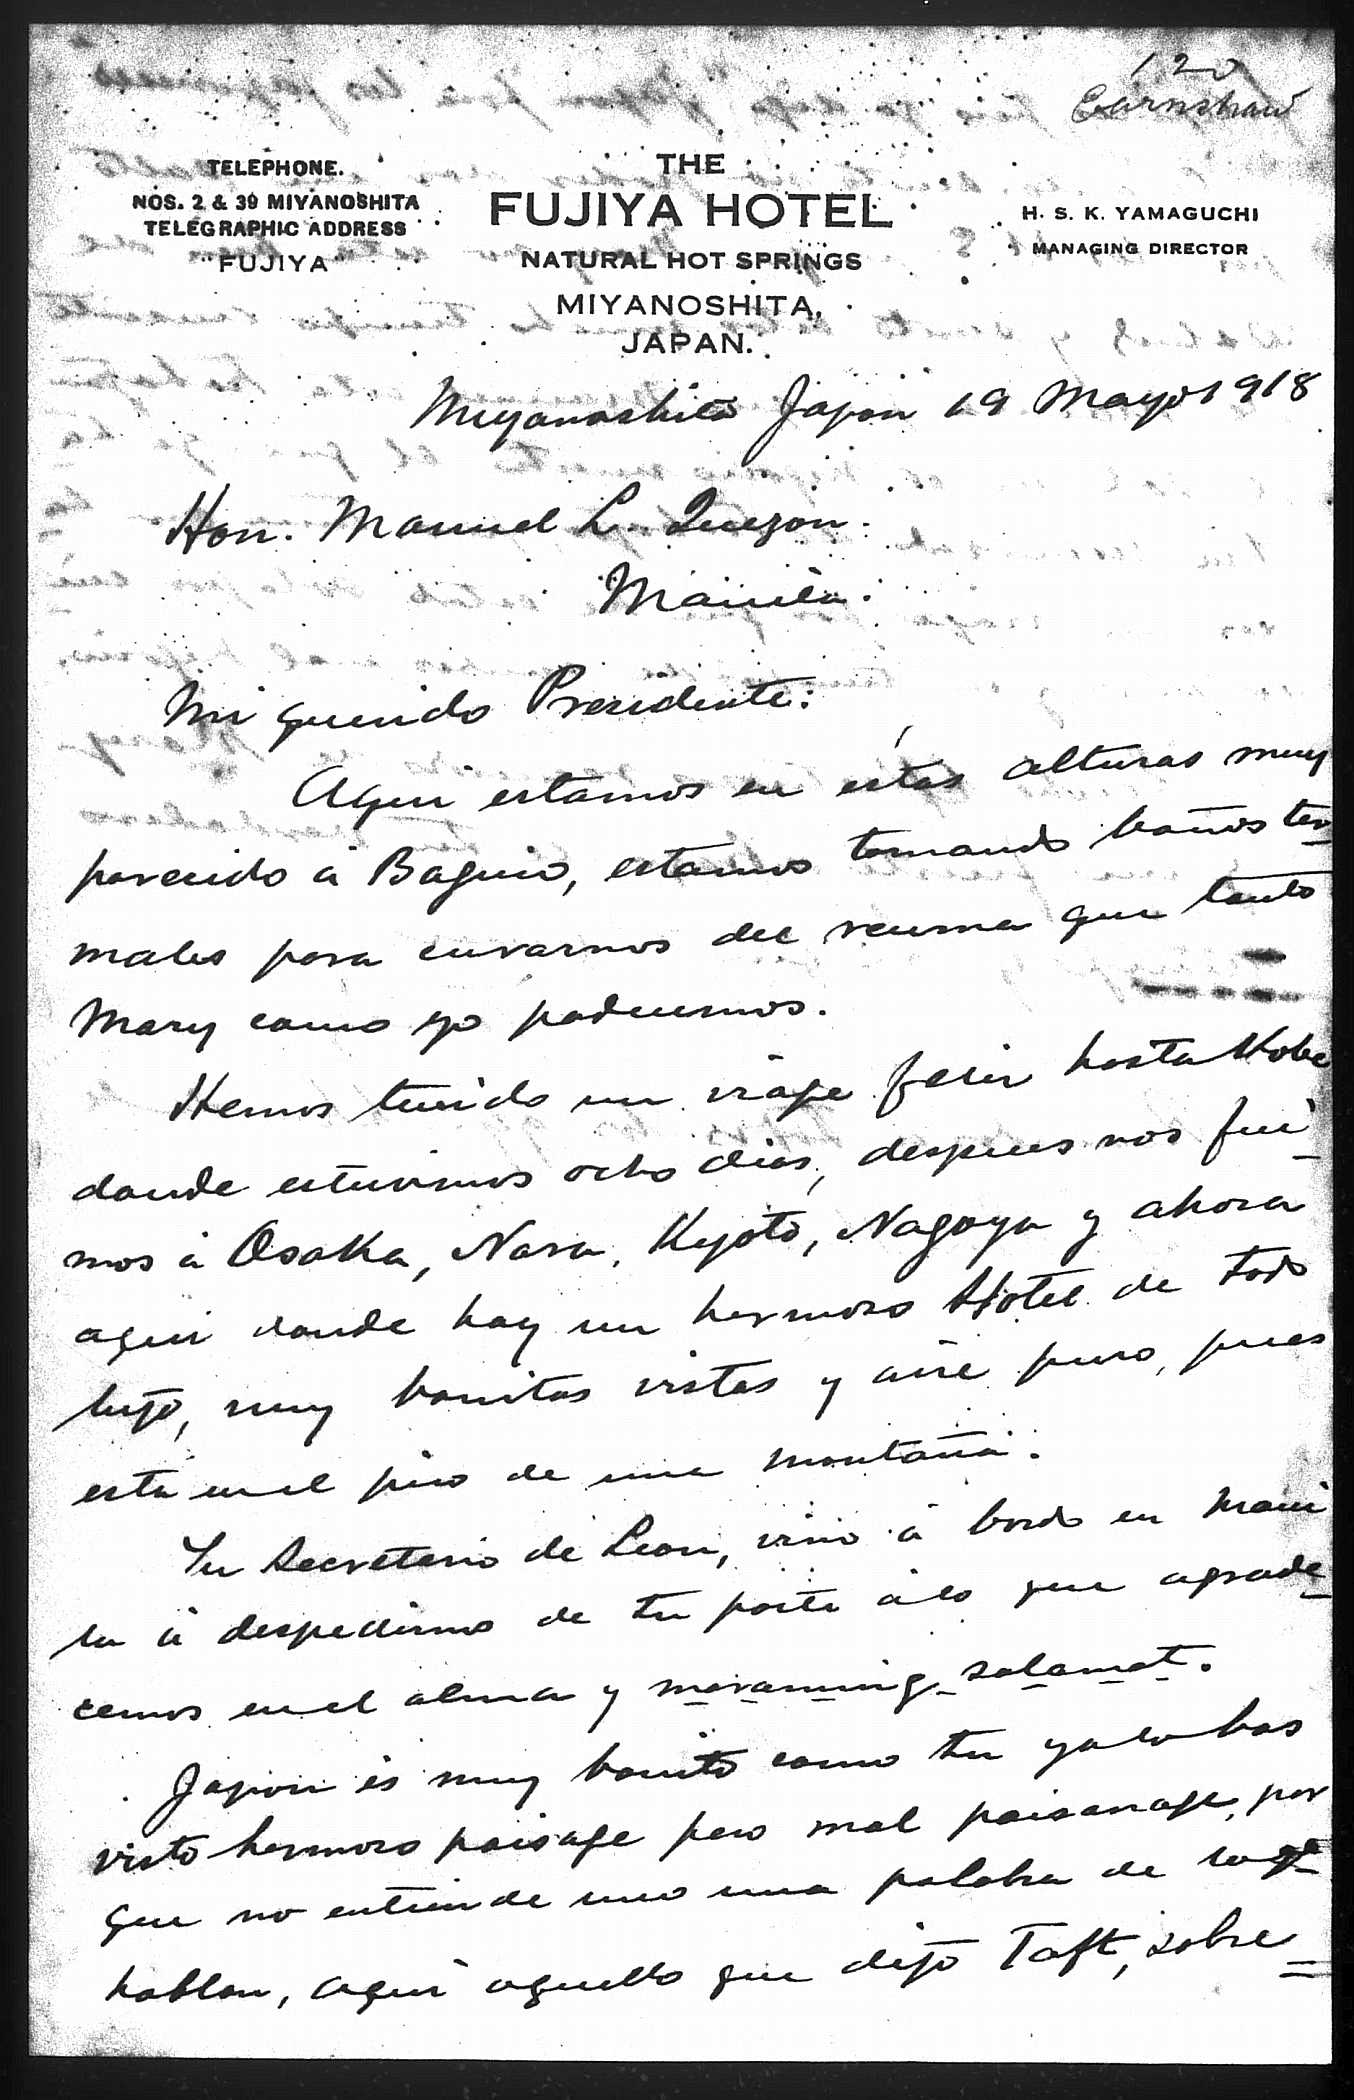 120
Earnshaw
TELEPHONE.
NOS. 2 & 39 MIYANOSHITA
TELEGRAPHIC ADDRESS
"FUJIYA"
THE
FUJIYA HOTEL
NATURAL HOT SPRINGS
MIYANOSHITA,
JAPAN.
H. S. K. YAMAGUCHI
MANAGING DIRECTOR
Miyanoshita Japon 19 Mayo 1918
Hon. Manuel L. Quezon.
Manila.
Mi querido Presidente:
Aqui estamos en éstas alturas muy
parecido á Baguio, estamos tomando baños ter-
males para curarnos del reuma que tanto
Mary como yo padecemos.
Hemos tenido un viage feliz hasta Kobe
donde estuvimos ocho dias, despues nos fui-
mos á Osaka, Nara, Kyoto, Nagoya y ahora
aqui donde hay un hermoso Hotel de todo
lujo, muy bonitas vistas y aire puro, pues
esta en el pico de una montaña.
Tu Secretario de Leon, vino á bordo en Mani
la á despedirnos de tu parte á lo que agrade-
cemos en el alma y maraming salamat.
Japon es muy bonito como tu ya lo has
visto hermoso paisage pero mal paisanage, por
que no entiende uno una palabra de lo qe
hablan, aqui aquello que dijo Taft, sobre=